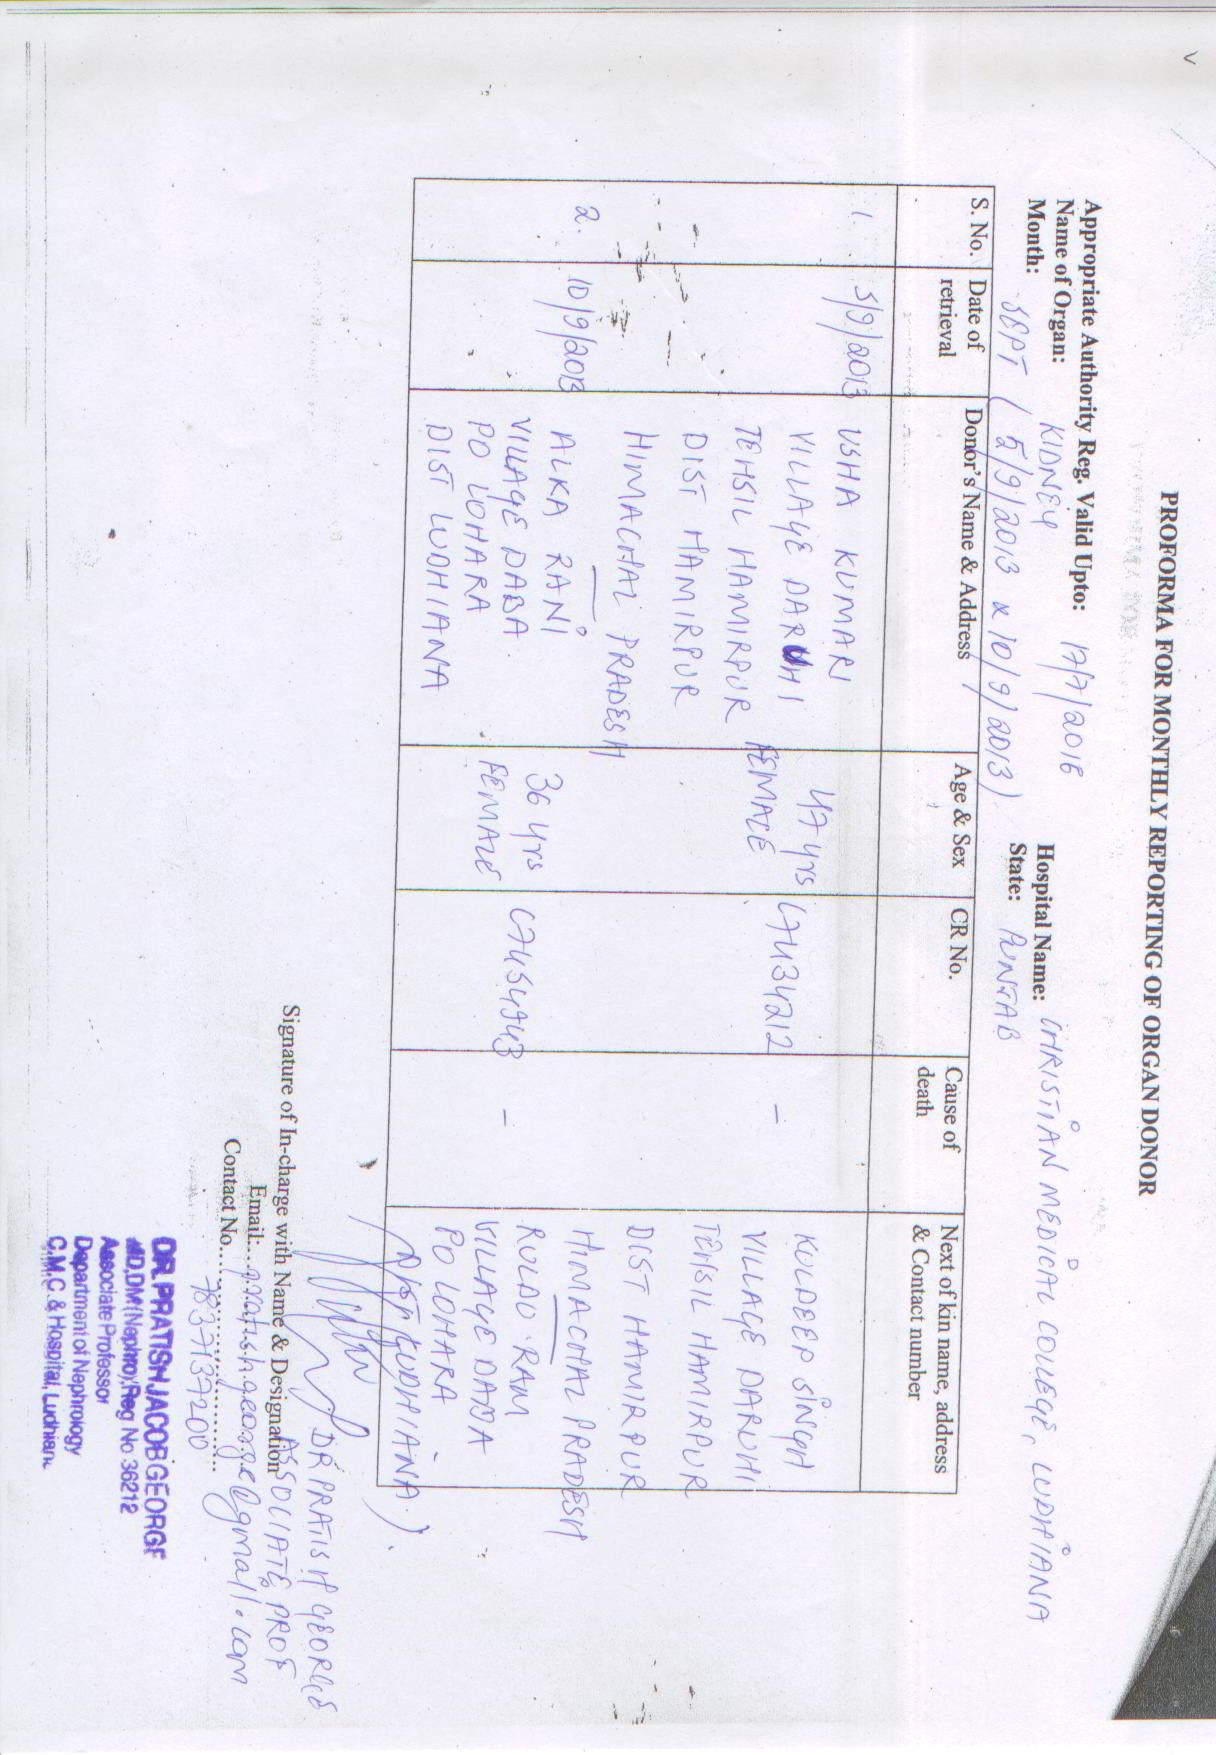 PROFORMA FOR MONTHLY REPORTING OF ORGAN DONOR
Appropriate Authority Reg. Valid Upto: 17/7/2016
Hospital Name: CHRISTIAN MEDICAL COLLEGE, LUDHIANA
Name of Organ: KIDNEY
State: PUNJAB
Month: SEPT (5/9/2013 & 10/9/2013)
S. No.
Date of
retrieval
Donor's Name & Address
Age & Sex
CR No.
Cause of
death
Next of kin name, address
& Contact number
1.
5/9/2013
USHA KUMARI
VILLAGE DARUHI
TEHSIL HAMIRPUR
DIST HAMIRPUR
HIMACHAL PRADESH
47 yrs
FEMALE
C7434212
–
KULDEEP SINGH
VILLAGE DARUHI
TEHSIL HAMIRPUR
DIST HAMIRPUR
HIMACHAL PRADESH
2.
10/9/2013
ALKA RANI
VILLAGE DABA
PO LOHARA
DIST LUDHIANA
36 yrs
FEMALE
C7454943
–
RULDU RAM
VILLAGE DABA
PO LOHARA
(DIST LUDHIANA).
DR PRATISH GEORGE
ASSOCIATE PROF
Signature of In-charge with Name & Designation
Email: pratish.george@gmail.com
Contact No. 7837137200
DR. PRATISH JACOB GEORGE
MD,DM (Nephro),Reg No 36212
Associate Professor
Department of Nephrology
C.M.C. & Hospital, Ludhiana